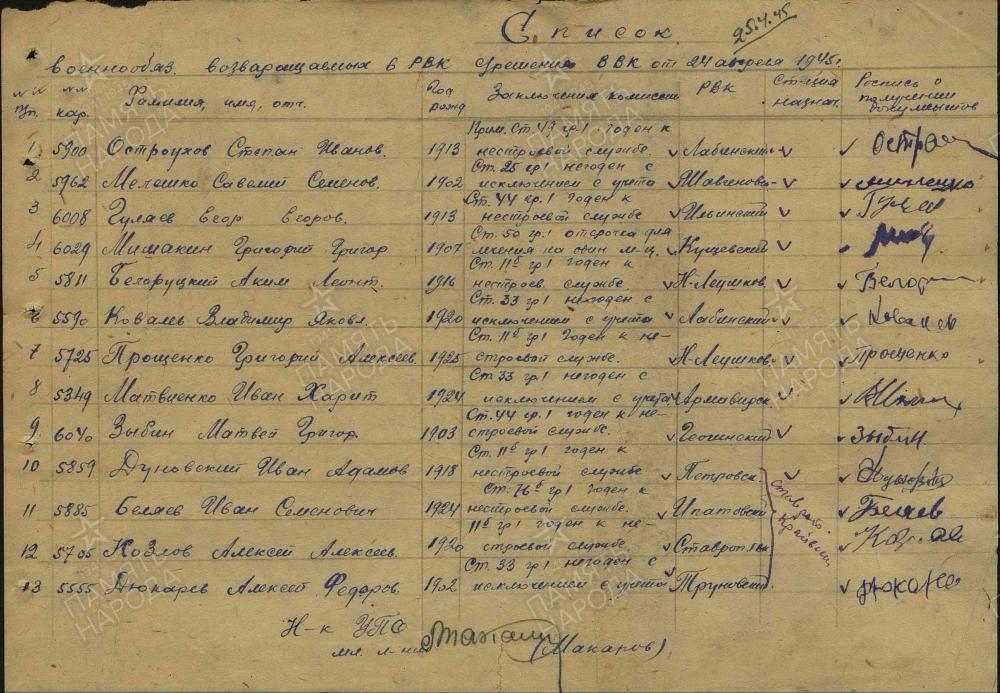 Список
25.4.45
военнообяз. возвращаемых в РВК с решением ВВК от 24 апреля 1945г
№№ пп. №№ кар. Фамилия, имя, отч. Год рожд Заключения комиссии РВК Станция назнач. Роспись о получении документов
1 5900 Остроухов Степан Иванов. 1913 Прим. Ст. 49 гр.1 годен к нестроевой службе Лабинский
2 5962 Мелешко Савелий Семенов. 1902 Ст. 25 гр.1 негоден с исключением с учета
3 6008 Гуляев Егор Егоров. 1913 Ст. 44 гр.1 годен к нестроевой службе Ильинский Гуляев
4 6029 Мишакин Григорий Григор 1907 Ст. 50 гр.1 отсрочка для лечения на один м-ц. Кущевский
5 5811 Белоруцкий Аким Леонт. 1916 Ст. 11б гр.1 годен к нестроев. службе Н-Леушков.
6 5590 Коваль Владимир Яковл. 1920 Ст. 33 гр.1 негоден с исключением с учета Лабинский
7 5725 Прощенко Григорий Алексеев. 1925 Ст. 11б гр.1 годен к нестроевой службе. Н-Леушков Прощенко
8 5349 Матвиенко Иван Харит 1924 Ст. 33 гр.1 негоден с исключением с учета Армавирск
9 6040 Зыбин Матвей Григор. 1903 Ст. 44 гр.1 годен к нестроевой службе. Зыбин
10 5859 Дуновский Иван Адамов 1918 Ст. 11б гр.1 годен к нестроевой службе Петровск.
11 5885 Беляев Иван Семенович 1924 Ст. 76б гр.1 годен к нестроевой службе. Ипатовский Беляев
12 5705 Козлов Алексей Алексеев. 1920 11б гр.1 годен к нестроевой службе Ставропольск
13 5555 Дюкарев Алексей Федоров. 1902 Ст. 33 гр.1 негоден с исключением с учета Труновский
Н-к УПФ
мл. л-нт (Макаров)
ПАМЯТЬ НАРОДА